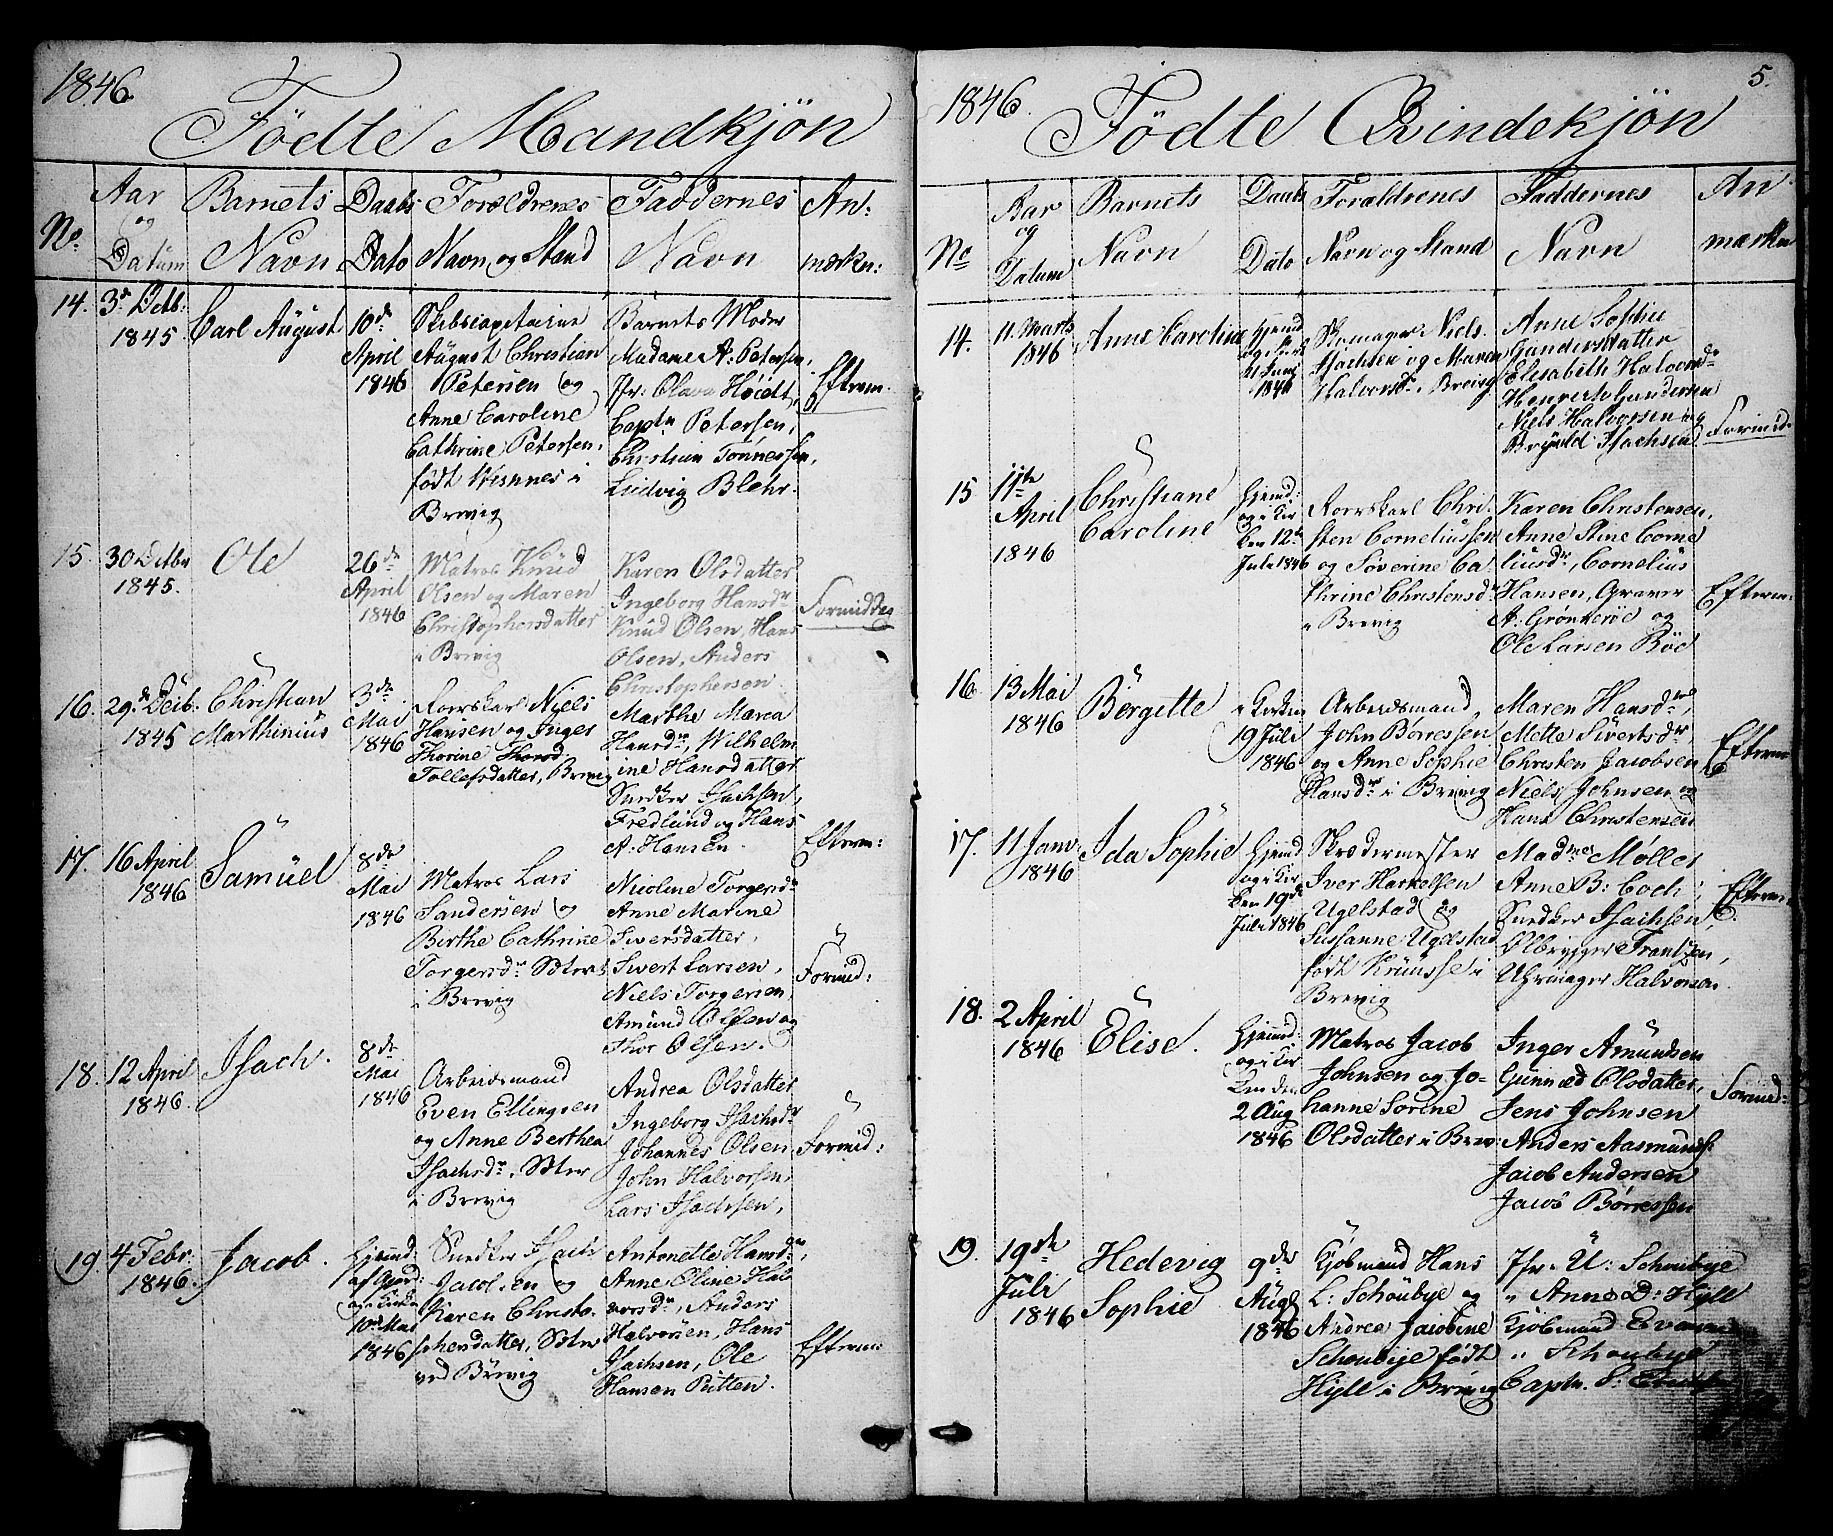 1846.
Födte Mandkjön
No.
Aar
og
Datum
Barnets
Navn
Daabs
Dato
Forældrenes
Navn og Stand
Faddernes
Navn
An:
mærkn:
14.
3de Octb:
1845.
Carl August
10de
April
1846
Skibscapitaine
August Christian
Petersen og
Anne Caroline
Cathrine Petersen,
født Wisnnes i
Brevig
Barnets Moder
Madame A: Petersen,
Jfr: Olava Høidt,
Captn Petersen,
Christian Tönnessen,
Ludvig Blehr.
Efterm.
15.
30 Octbr
1845.
Ole
26de
April
1846
Matros Knud
Olsen og Maren
Christophersdatter
i Brevig
Karen Olsdatter
Ingeborg Hansdr
Knud Olsen, Hans
Olsen, Anders
Christophersen
Formiddag
16.
29de Decb:
1845
Christian
Marthinius
3de
Mai
1846
Roerskarl Niels
Hansen og Inger
Thorine Thorsd
Tollefsdatter, Brevig
Marthe Marea
Hansdr, Wilhelm
ine Hansdatter
Snedker Isachsen,
Fredlund og Hans
A. Hansen.
Efterm:
17.
16 April
1846
Samuel
8de
Mai
1846
Matros Lars
Sandersen og
Berthe Cathrine
Torgersdr
i Brevig
Nicoline Torgersdr
Anne Marine
Siversdatter,
Sivert Larsen,
Niels Torgersen,
Amund Olsen og
Thor Olsen.
Formid:
18.
12 April
1846.
Isach.
8de
Mai
1846
Arbeidsmand
Even Ellingsen
og Anne Berthea
Isachsdr,
i Brevig
Andrea Olsdatter
Ingeborg Isachsdr
Johannes Olsen
John Halvorsen,
Lars Isachsen,
Formid:
19.
4 Febr.
1846.
Jacob.
Hjemd:
10de Mai
1846
Snedker Isach
Jacobsen og
Karen Christo-
phersdatter,
ved Brevig
Antonette Hansdr,
Anne Oline Hal
vorsdr, Anders
Halvorsen, Hans
Isachsen, Ole
Hansen Putten.
Efterm:
1846.
5.
Födte Qvindekjön
No
Aar
og
Datum
Barnets
Navn
Daabs
Dato
Forældrenes
Navn og Stand
Faddernes
Navn
An
mærkn
14.
11. Marts
1846
Anne Caroline
Hjemd
21 Juni
1846
Skomager Niels
Isachsen og Maren
Halvorsdr i Brevig
Anne Sophie
Gundersdatter
Elisabeth Halvorsdr
Henrerte Gundersen
Niels Halvorsen og
Brynild Isachsen
Formid:
15
11te
April
1846
Christiane
Caroline
Hjemd:
og i Kir
ken 12te
Juli 1846
Roerskarl Chri-
sten Corneliussen
og Söverine Ca-
thrine Christensdr
i Brevig
Karen Christensen,
Anne Stine Corne
liusdr, Cornelius
Hansen, Graver
A. Grönkröe og
Ole Larsen Röd
Efterm:
16.
13 Mai
1846
Börgitte
i Kirken
19 Juli
1846
Arbeidsmand
John Börresen
og Anne Sophie
Hansdr i Brevig
Maren Hansdr,
Mette Sivertsdr
Christen Jacobsen
Niels Johnsen og
Hans Christensen
Efterm
17.
11 Janv.
1846
Ida Sophie
Hjemd
og i Kir
ken 19de
Juli 1846
Skrædermester
Iver Harkelsen
Ugelstad og
Susanne Ugelstad
født Kruusse i
Brevig
Madmes Møller
Anne B: Coch,
Snedker Isachsen,
Ølbrygger Frantzen,
Uhrmager Halvorsen
Efterm:
18.
2 April
1846
Elise.
Hjemd:
og i Kir
ken den
2 Aug
1846
Matros Jacob
Johnsen og Jo-
hanne Sorine
Olsdatter i Brev:
Inger Amundsen
Gunnæd Olsdatter,
Jens Johnsen
Anders Aasmunds:
Jacob Andersen
Jacob Börressen
Formid:
19.
19de
Juli
1846
Hedevig
Sophie
9de
Aug
1846
Kjöbmand Hans
L: Schoubye og
Andrea Jacobine
Schoubye født
Hyll i Brevig
Jfr. U: Schoubye
" Anne D: Hyll
Kjöbmand
" Schoubye
Captn.